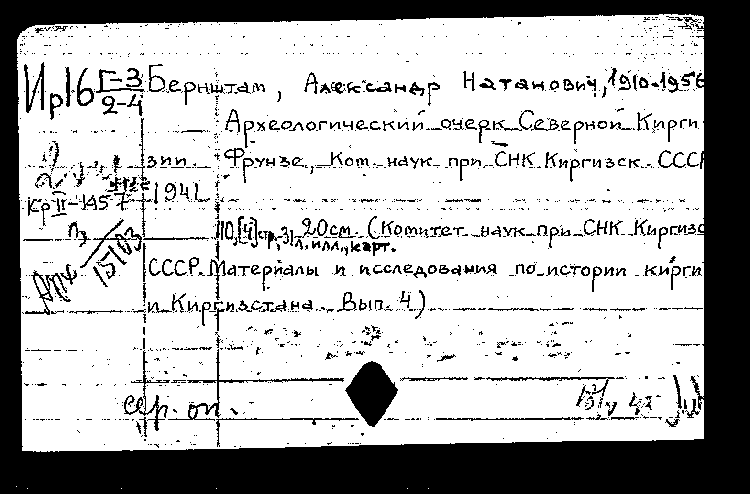 Ир16 Г-3/2-4 Бернштам, Александр Натанович, 1910-1956
Археологический очерк Северной Кирги-
зии. Фрунзе, Ком. наук при СНК Киргизск. СССР
Кр II-1457 1941
110,[4] стр., 3 л. илл., карт. 20см. (Комитет наук при СНК Киргизс
15103
СССР. Материалы и исследования по истории кирги
и Киргизстана. Вып. 4)
сер. оп.